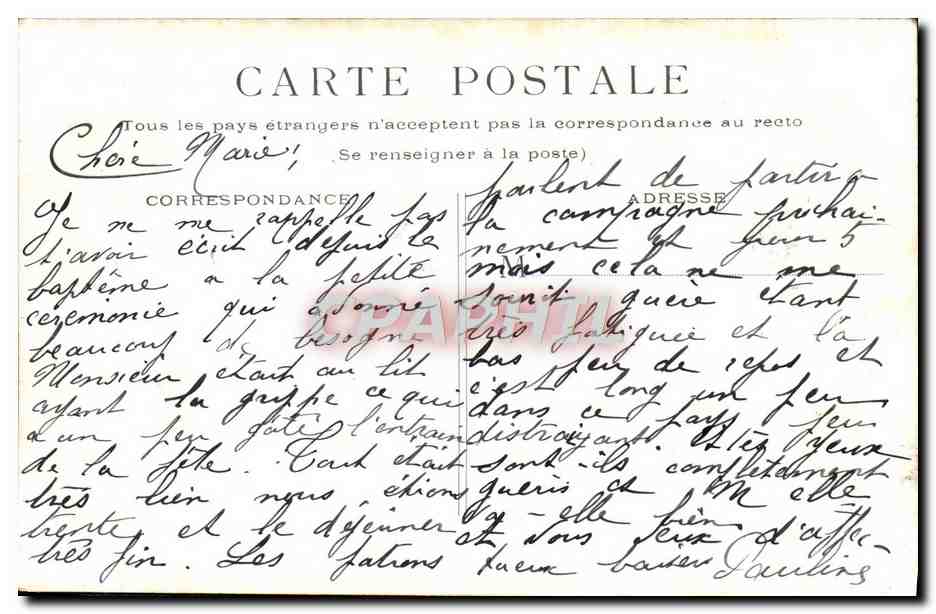 CARTE POSTALE
Tous les pays étrangers n'acceptent pas la correspondance au recto
(Se renseigner à la poste)
CORRESPONDANCE
ADRESSE
M
CPAPHIL
Chère Marie,
Je ne me rappelle pas
t'avoir écrit depuis le
baptême a la petite
ceremonie qui a donné
beaucoup de besogne
Monsieur était au lit
ayant la grippe ce qui
a un peu gâté l'entrain
de la fête. Tout était
très bien nous étions
trente et le déjeuner
très fin. Les patrons
parlent de partir a
la campagne prochai-
nement et pour 5
mois cela ne me
sourit guère étant
très fatiguée et là
bas peu de repos et
c'est long un peu
dans ce pays peu
distrayant. et tes yeux
sont-ils complètement
guéris et Melle
va-elle bien
et vous deux d'affec-
tueux baisers Pauline